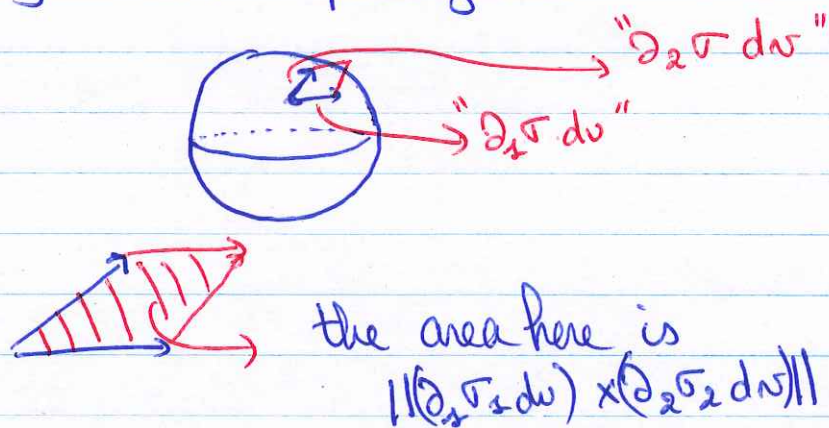 "∂₂σ dv"
"∂₁σ du"
the area here is
||(∂₁σ₁ du) x(∂₂σ₂ dv)||